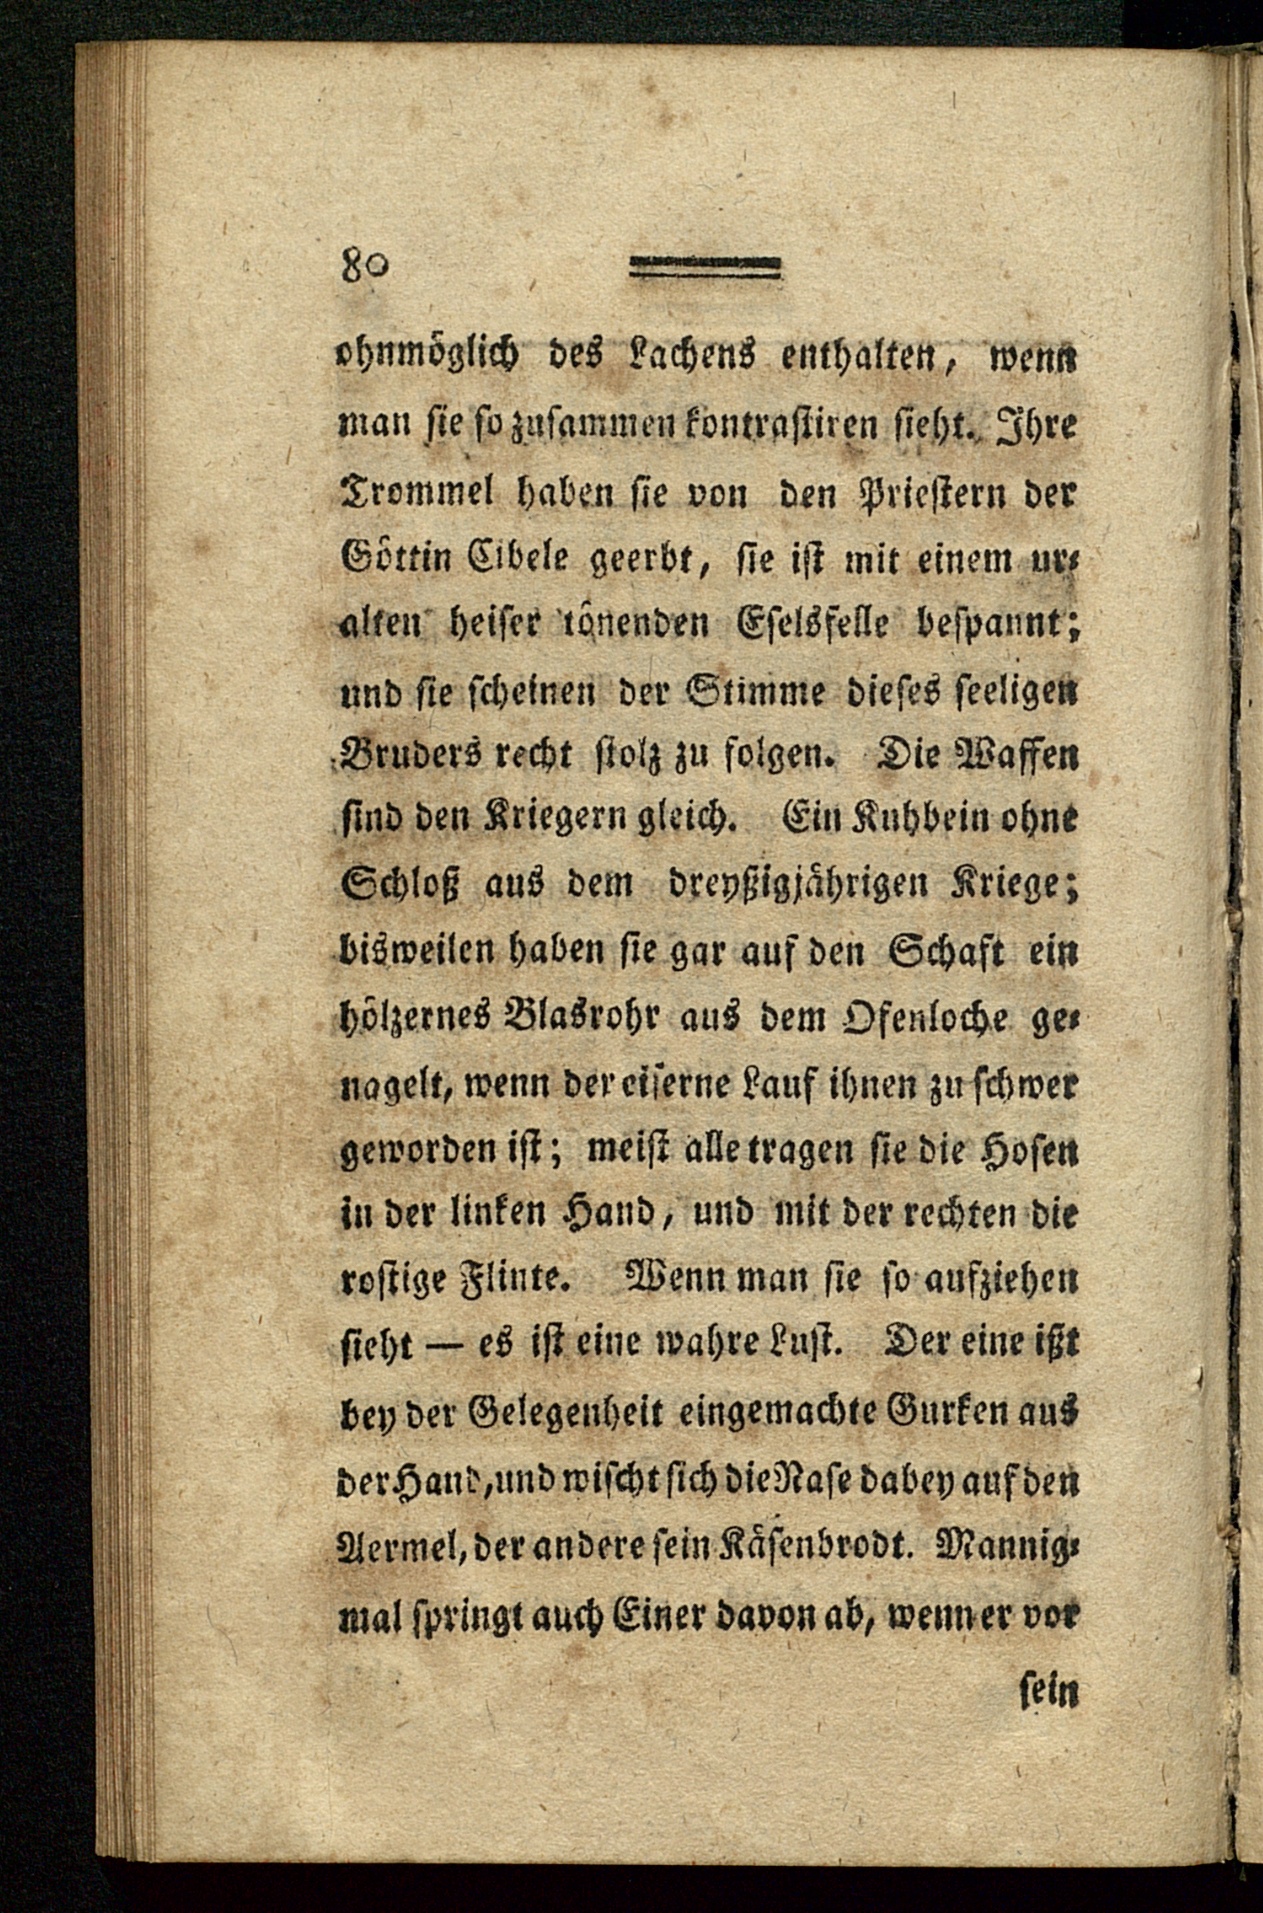 80
ohnmöglich des Lachens enthalten, wenn
man sie so zusammen kontrastiren sieht. Ihre
Trommel haben sie von den Priestern der
Göttin Cibele geerbt, sie ist mit einem ur-
alten heiser tönenden Eselsfelle bespannt;
und sie scheinen der Stimme dieses seeligen
Bruders recht stolz zu folgen. Die Waffen
sind den Kriegern gleich. Ein Kuhbein ohne
Schloß aus dem dreyßigjährigen Kriege;
bisweilen haben sie gar auf den Schaft ein
hölzernes Blasrohr aus dem Ofenloche ge-
nagelt, wenn der eiserne Lauf ihnen zu schwer
geworden ist; meist alle tragen sie die Hosen
in der linken Hand, und mit der rechten die
rostige Flinte. Wenn man sie so aufziehen
sieht — es ist eine wahre Lust. Der eine ißt
bey der Gelegenheit eingemachte Gurken aus
der Hand, und wischt sich die Nase dabey auf den
Aermel, der andere sein Käsenbrodt. Mannig-
mal springt auch Einer davon ab, wenn er vor
sein